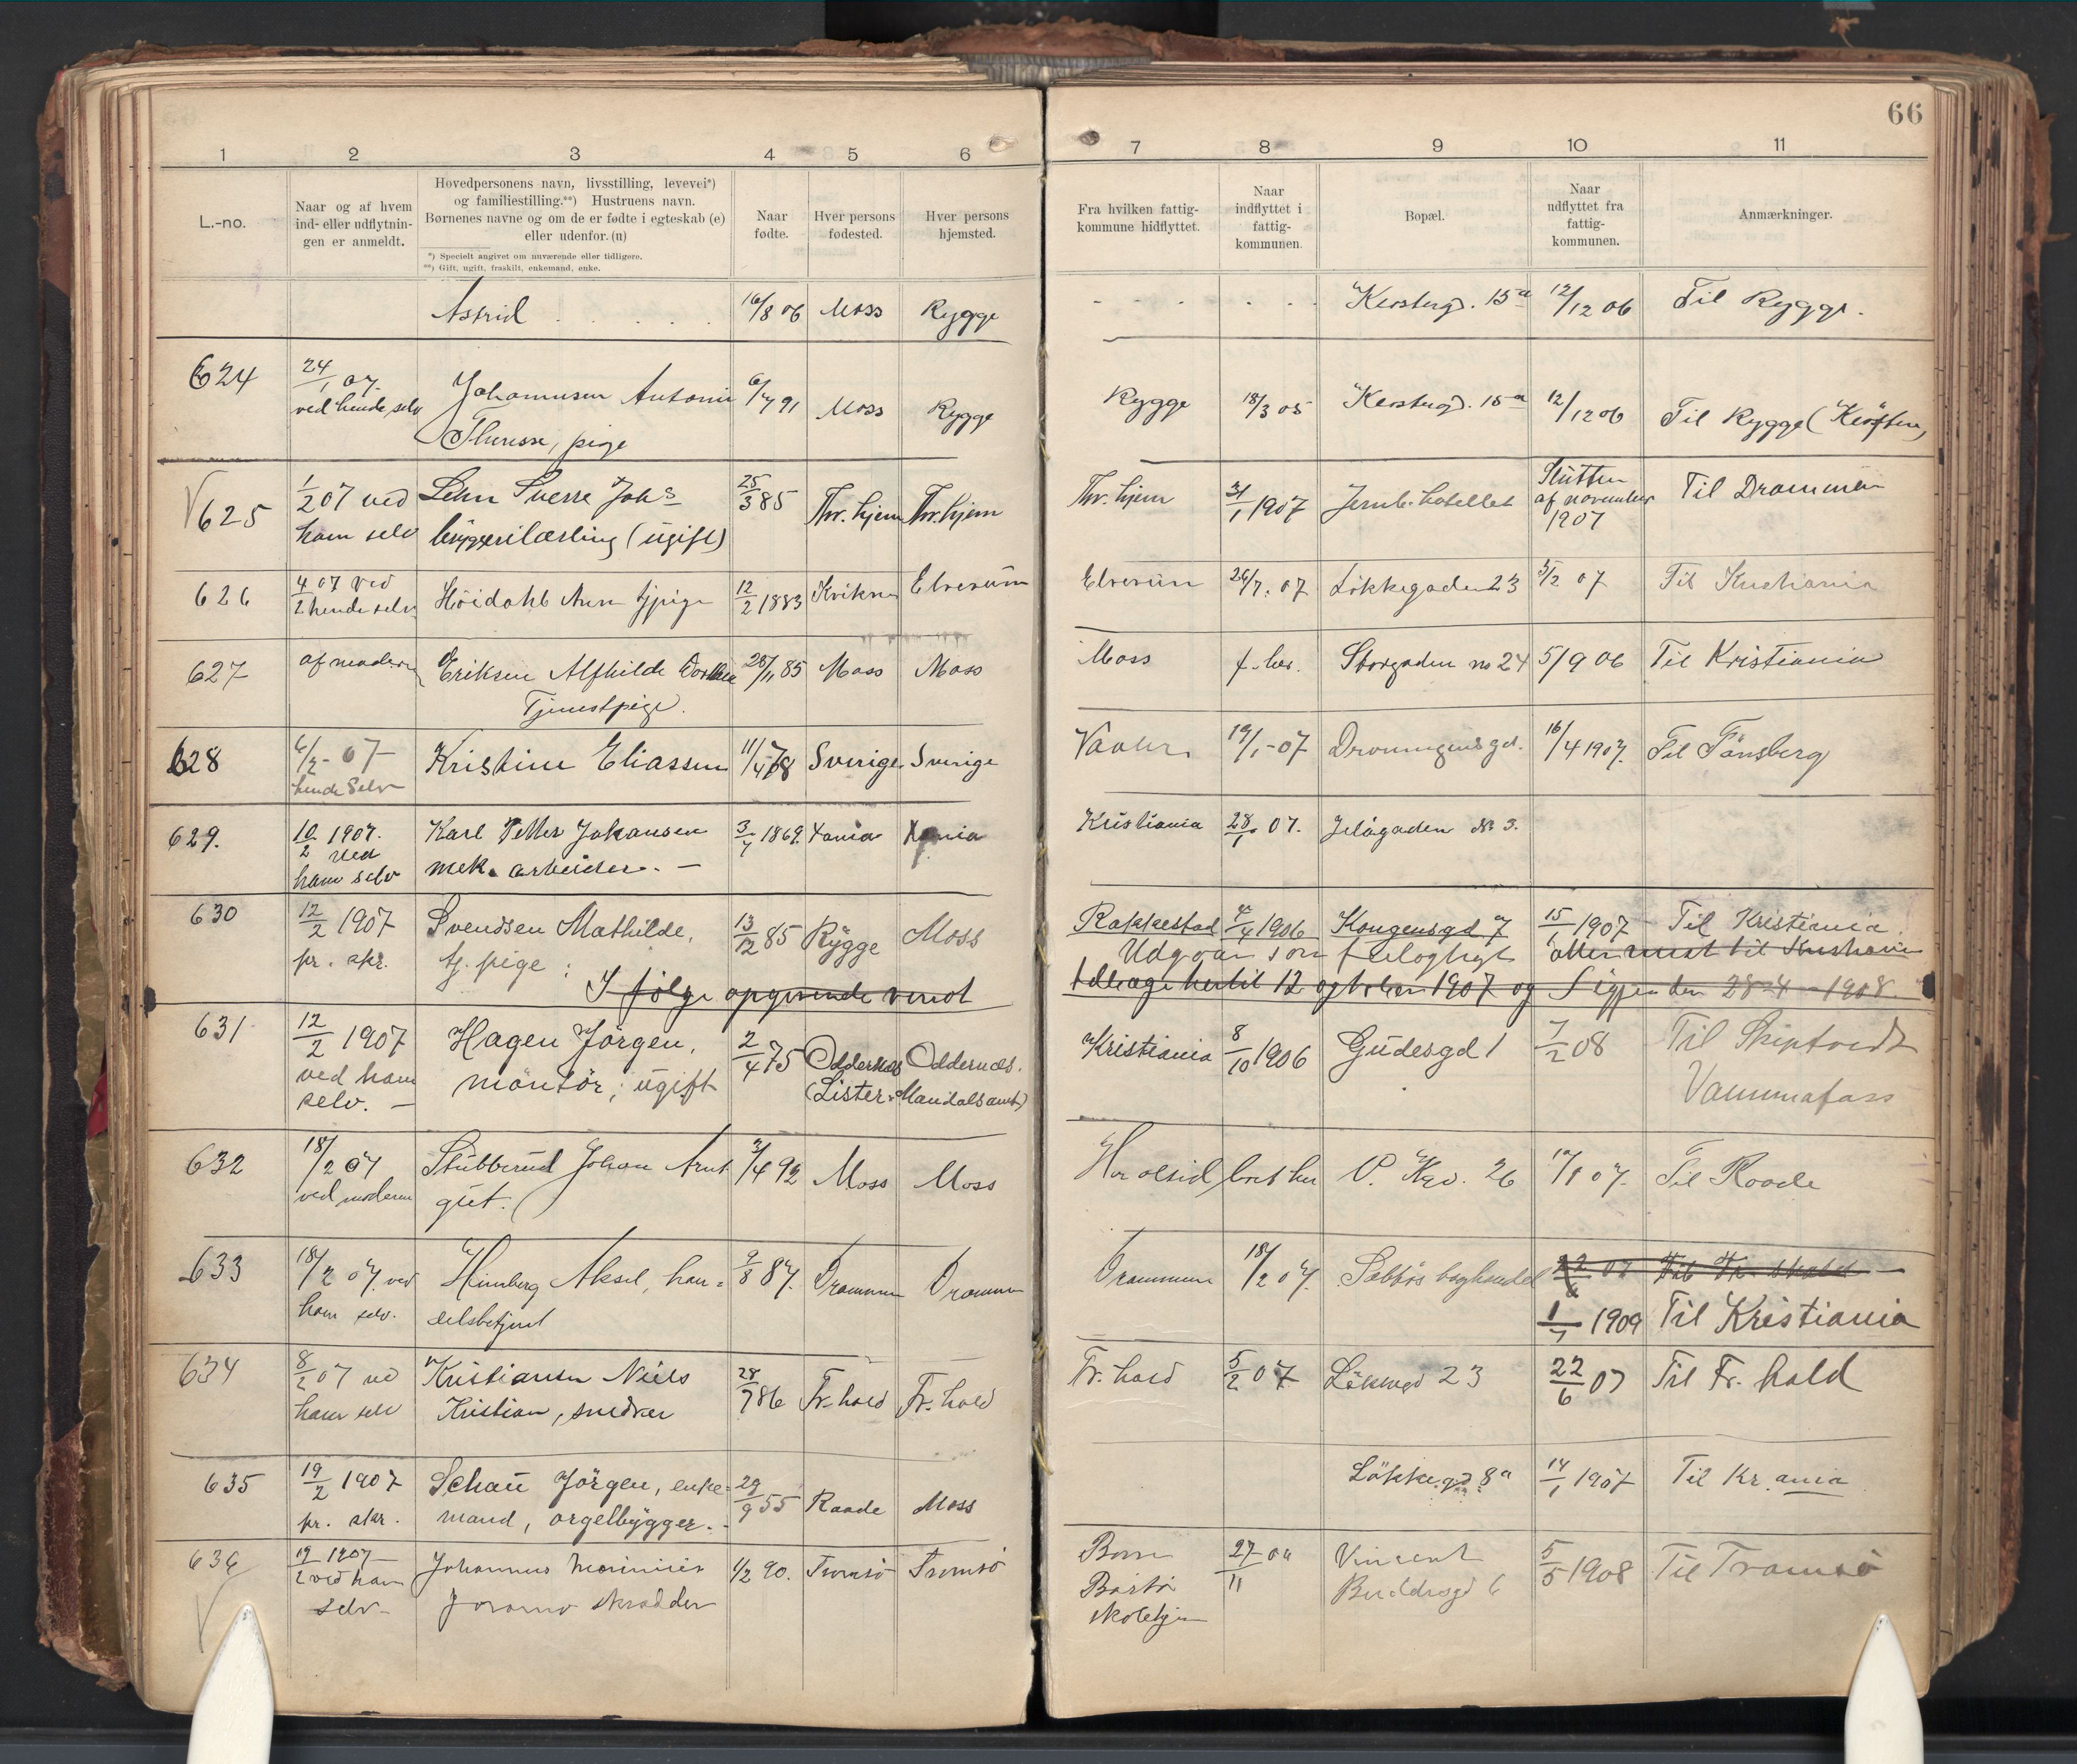 66
1 2 3 4 5 6 7 8 9 10 11
L.-no.
Naar og af hvem
ind- eller udflytnin-
gen er anmeldt.
Hovedpersonens navn, livsstilling, levevei*)
og familiestilling.**) Hustruens navn.
Børnenes navne og om de er fødte i egteskab (e)
eller udenfor. (u)
*) Specielt angivet om nuværende eller tidligere.
**) Gift, ugift, fraskilt, enkemand, enke.
Naar
fødte.
Hver persons
fødested.
Hver persons
hjemsted.
Fra hvilken fattig-
kommune hidflyttet.
Naar
indflyttet i
fattig-
kommunen.
Bopæl.
Naar
udflyttet fra
fattig-
kommunen.
Anmærkninger.
Astrid 16/8 06 Moss Rygge 15a 12/12 06 Til Rygge.
624 24/1 07. Johannesen Antonie 6/7 91 Moss Rygge Rygge 18/3 05 15a 12/12 06 Til Rygge
ved hende selv
Therese, pige
625 1/2 07 ved Lehn Sverre Johs 25/3 85 Thr. hjem Thr. hjem Thr. hjem 31/1 1907 Jernb. hotellet Slutten Til Drammen
af november
1907
ham selv bryggerilærling (ugift)
626 4/2 07 ved Höidahl Anna tjpige 12/2 1883 Kvikne Elverum Elverum 26/7. 07 Lökkegaden 23 3/2 07 Til Kristiania
hende selv
627 af moderen Eriksen Alfhilde 28/11 85 Moss Moss Moss f. her. Storgaden no 24 5/9 06 Til Kristiania
Tjenestpige.
628 6/2 - 07 Kristine Eliassen 11/4 78 Sverige Sverige Vaaler 19/1 - 07 Dronningensgd. 16/4 1907. Til Tönsberg
hende selv
629. 10/2 1907. Karl Petter Johansen 3/7 1869. Xania Xania Kristiania 28/1 07. Jelögaden No 3.
ved
ham selv mek. arbeider. —
630 12/2 1907 Svendsen Mathilde, 13/12 85 Rygge Moss Rakkestad 1906 Kongensgd 7 15/1 1907 Til Kristiania.
pr. skr. tj. pige : Udgaar som
I følge opgivende vendt
tilbage hertil 12 agtober 1907 og 28-4-1908.
631 12/2 1907 Hagen Jörgen, 2/4 75 Oddernæs Oddernæs. Kristiania 8/10 1906 Gudesgd 1 7/2 08 Til Skiptvedt
ved ham montör, ugift (Lister & Mandals amt) Vammafoss
selv. —
632 18/2 07 Stubberud Johan Arnt 3/4 92 Moss Moss Har altid boet her 26 07. Til Raade
ved moderen gut.
633 18/2 07. ved Himberg Aksel, han= 9/8 87. Drammen Drammen Drammen 18/2 07. boghandel
ham selv. delsbetjent 1/7 1909 Til Kristiania
634 8/2 07 ved Kristiansen Niels 28/7 86 Fr. hald Fr. hald Fr. hald 5/2 07 Lökkegd 23 22/6 07 Til Fr. hald
ham selv Kristian, snedker
635 19/2 1907 Schau Jörgen, enke= 29/9 55 Raade Moss Lökkegd 8a 14/1 1907 Til Kr.ania
pr. skr. mand, orgelbygger.
636 19/2 1907 Johannes 1/2 90. Tromsö Tromsö 27/11 Vincent 5/5 1908 Til Tromsö
ved ham Bastö Buddesgd 6
selv skrædder skolehjem